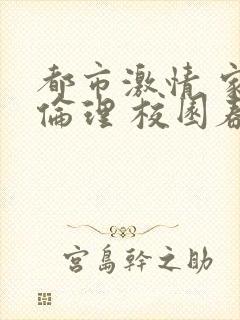 都市激情 家
倫理 校園春
宮島幹之助